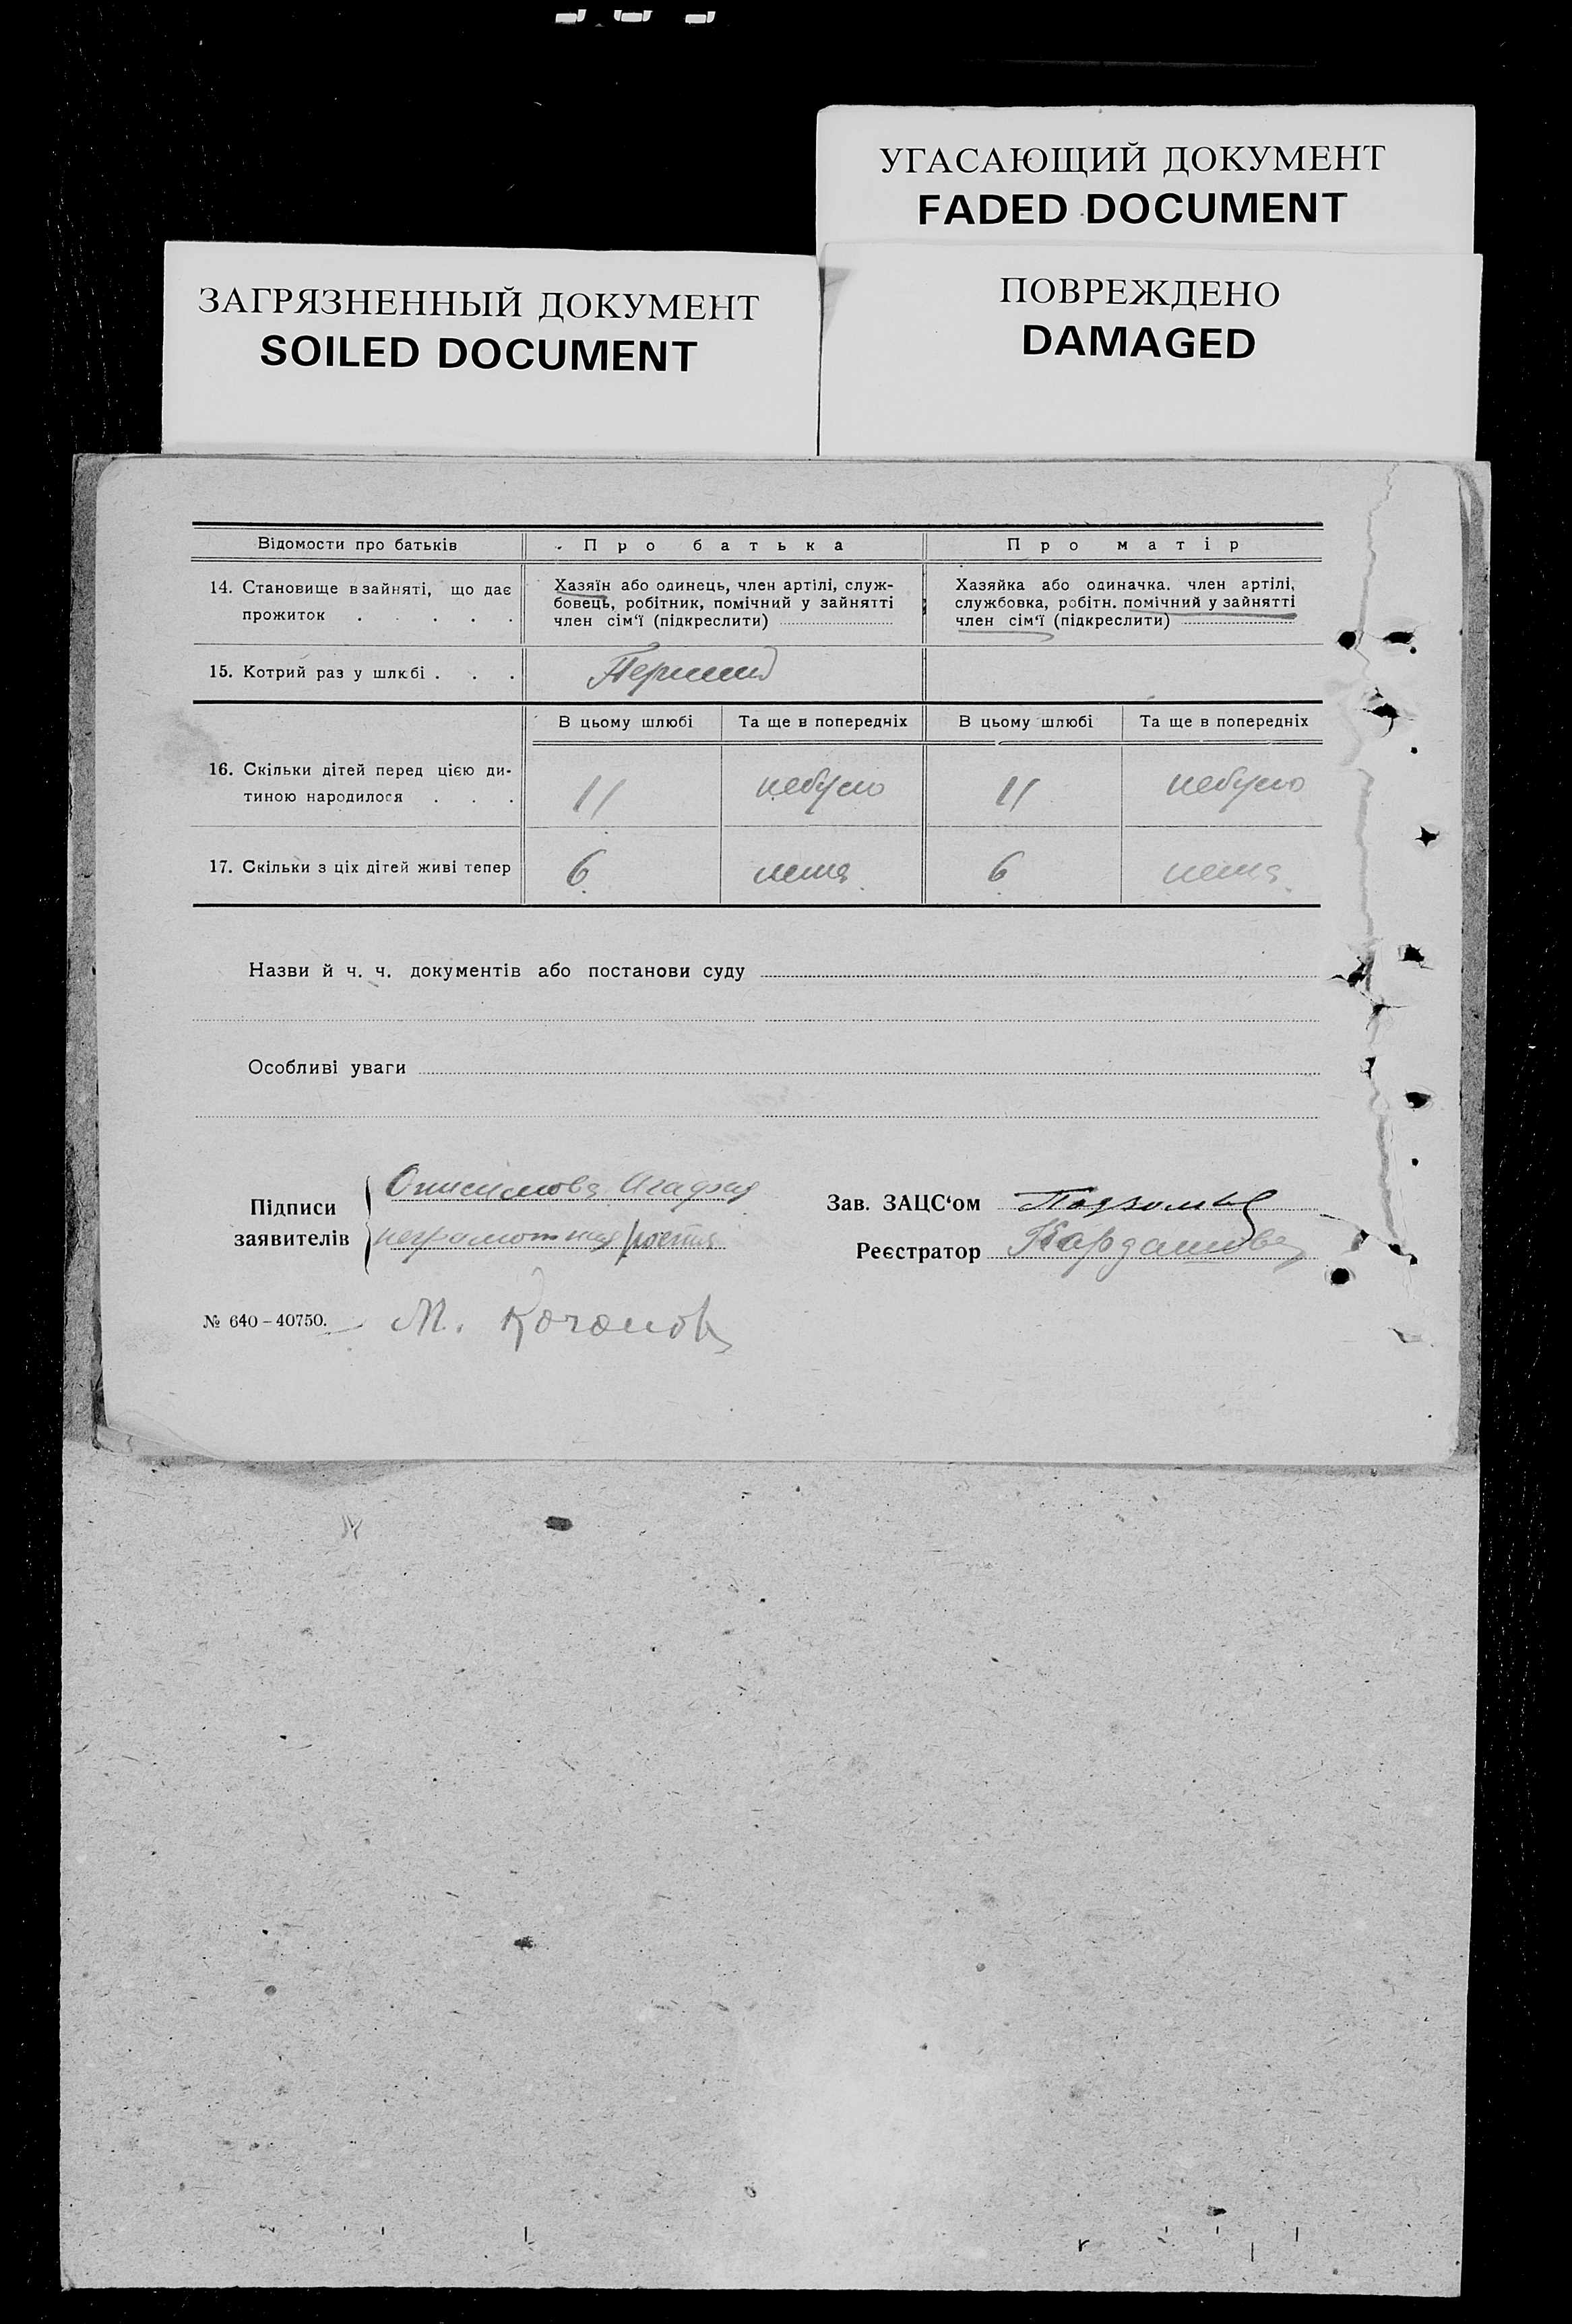 УГАСАЮЩИЙ ДОКУМЕНТ
FADED DOCUMENT
ЗАГРЯЗНЕННЫЙ ДОКУМЕНТ
SOILED DOCUMENT
ПОВРЕЖДЕНО
DAMAGED
Відомости про батьків
Про батька
Про матір
14. Становище в зайняті, що дає
прожиток . . . . .
Хазяїн або одинець, член артілі, служ-
бовець, робітник, помічний у зайнятті
член сім‘ї (підкреслити)
Хазяйка або одиначка. член артілі,
службовка, робітн. помічний у зайнятті
член сім‘ї (підкреслити)
15. Котрий раз у шлюбі . . .
Перший
В цьому шлюбі
Та ще в попередніх
В цьому шлюбі
Та ще в попередніх
16. Скільки дітей перед цією ди-
тиною народилося . . .
11
небуло
11
небуло
17. Скільки з ціх дітей живі тепер
6
нема
6
нема
Назви й ч. ч. документів або постанови суду
Особливі уваги
Підписи
заявителів
Агафия
неграмотная
Зав. ЗАЦС‘ом
Реєстратор Кардашова
№ 640-40750.
М.